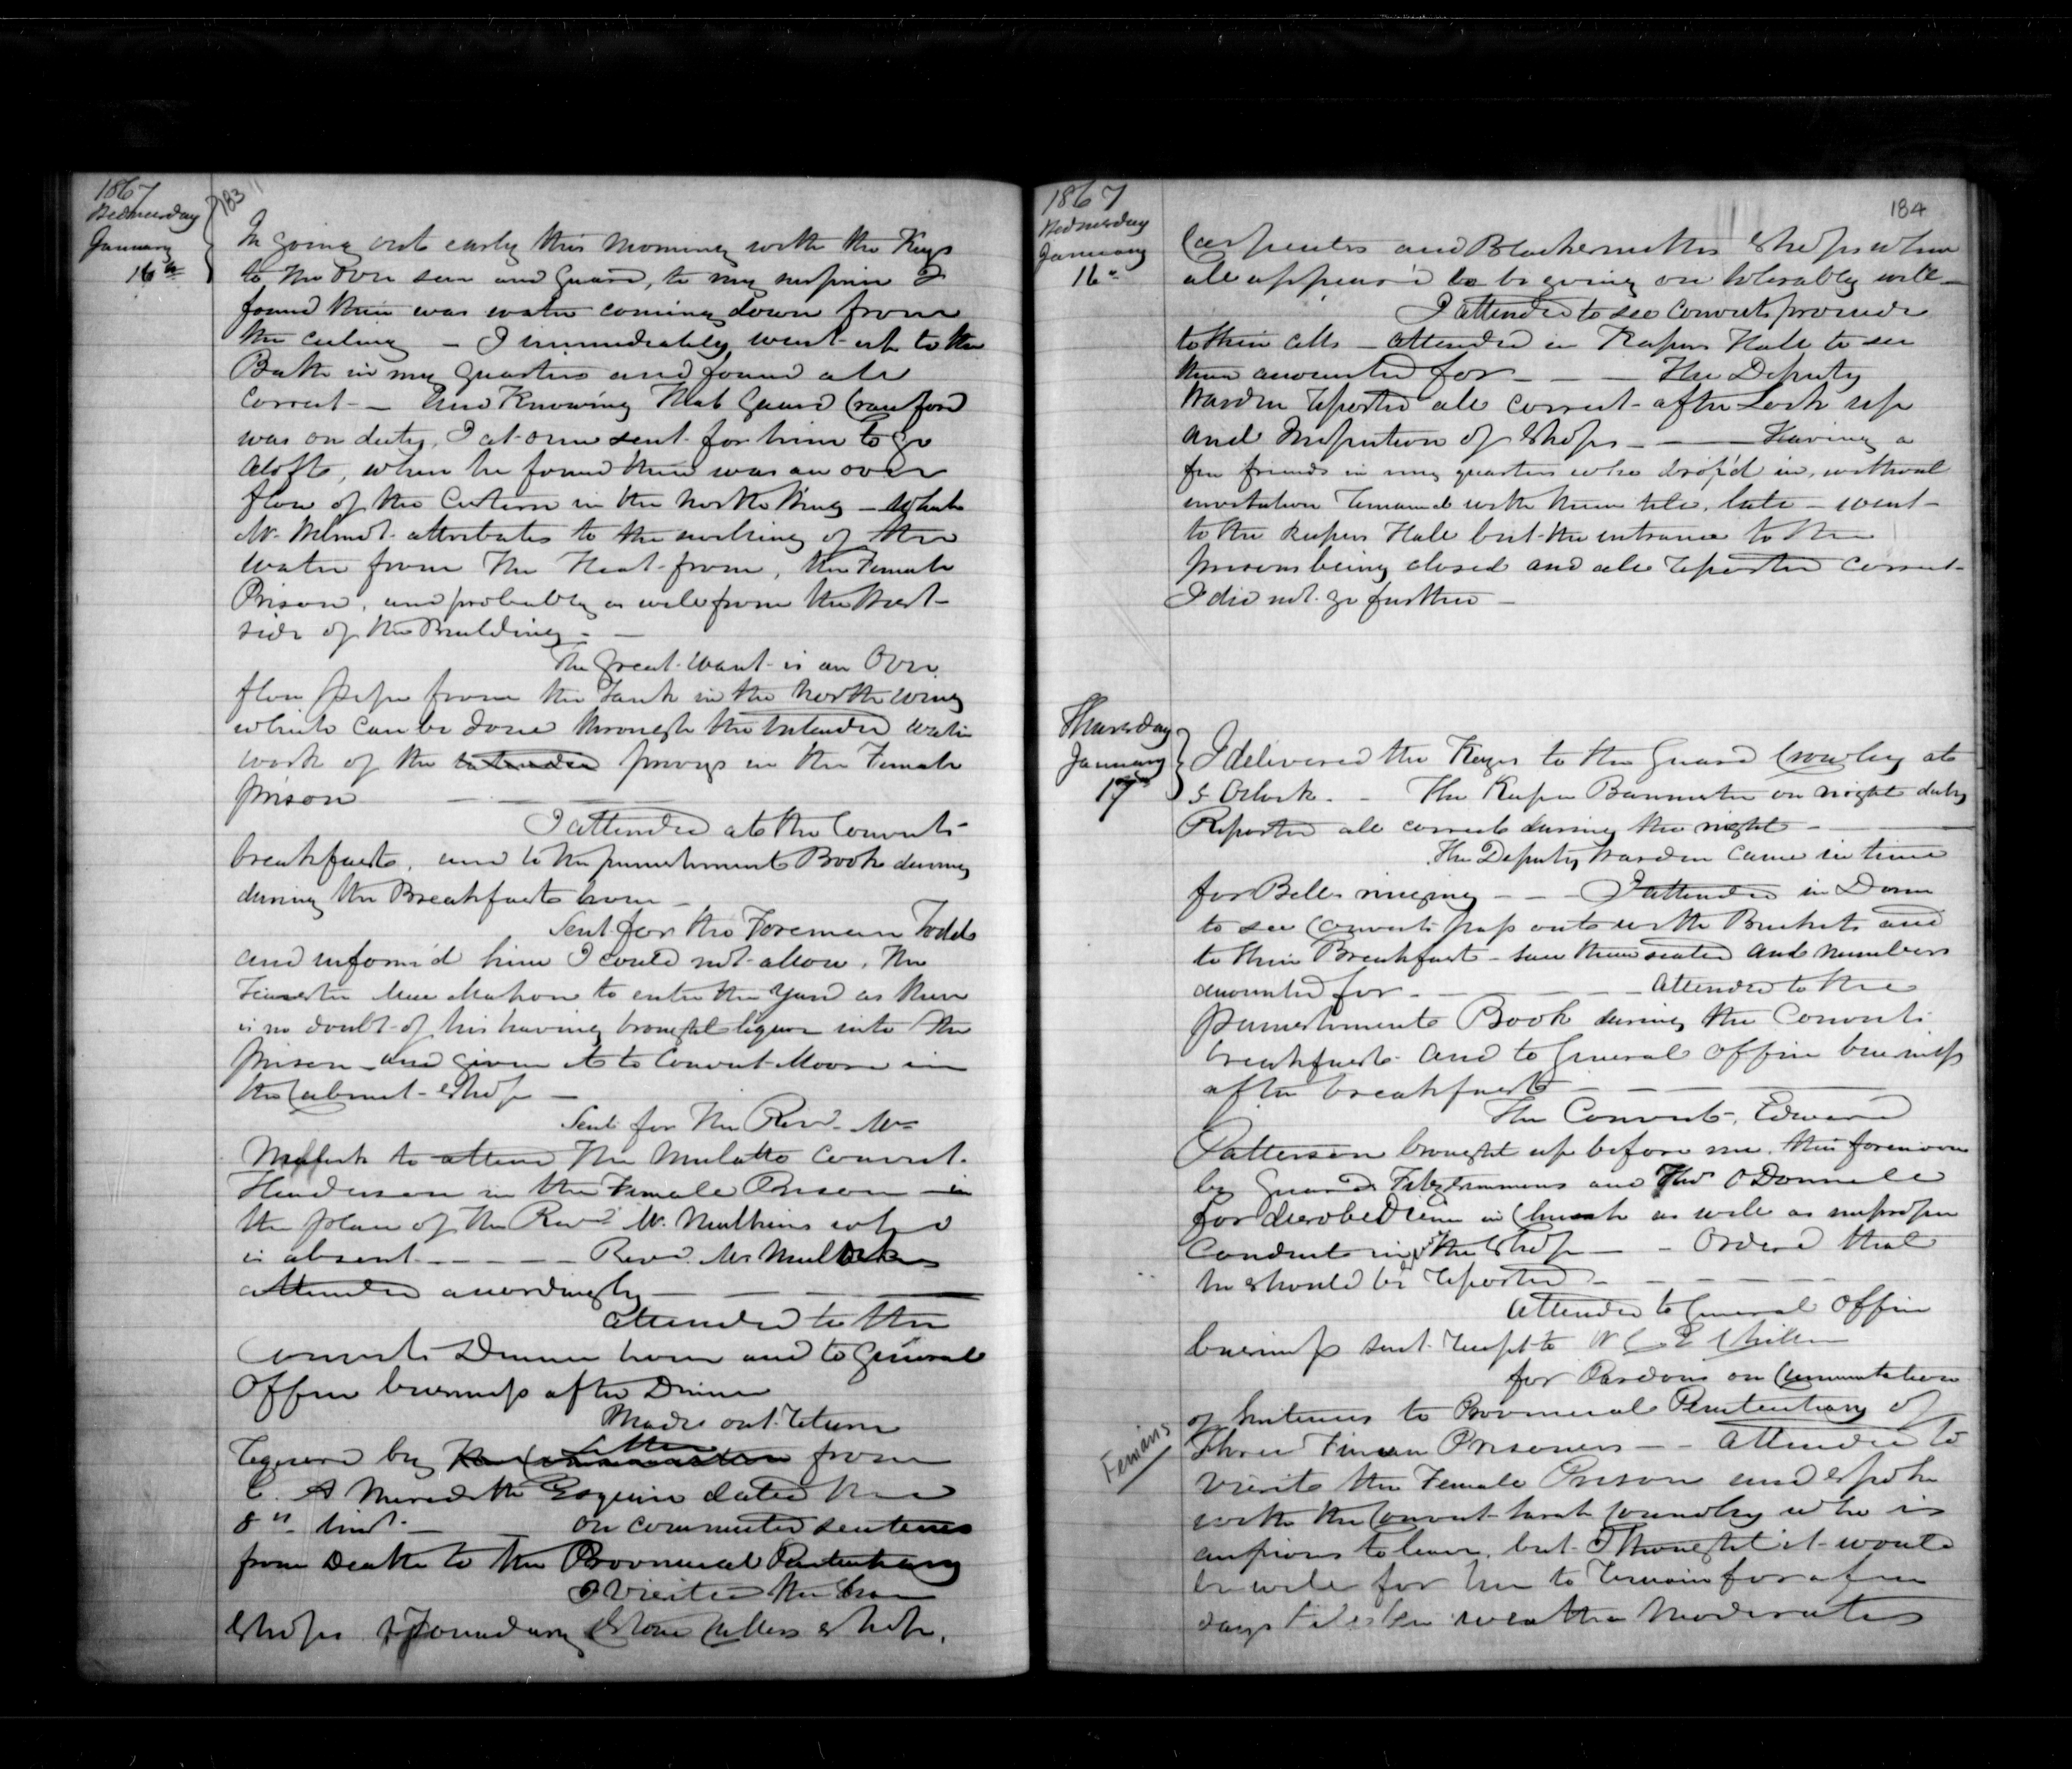 1867
Wednesday
January
16th
183
In going out early this morning with the Keys
to the Over seer and Guard, to my surprise I
found there was water coming down from
the ceiling — I immediately went up to the
Bath in my quarters and found all
Correct — And Knowing that Guard Crawford
was on duty, I at once sent for him to go
aloft, when he found there was an over
flow of the Cistern in the North Wing — which
Mr. attributes to the melting of the
water from the Heat from, the Female
Prison, and probably as well from the West
side of the Building —
The great want is an Over
flow pipe from the Tank in the North wing
which can be done through the intended water
work of the intended privys in the Female
prison — — —
I attended at the Convicts
breakfast, and to the punishment Book during
during the Breakfast hour —
Sent for the Foreman Todd
and inform'd him I could not allow, the
Teamster Mahon to enter the Yard as there
is no doubt of his having brought liquor into the
prison and given it to Convict Moore in
the Cabinet Shop —
Sent for the Revd. Mr
Mulock to attend the Mulatto Convict
Henderson in the Female Prison in
the place of the Revd. Mr. Mulkins who
is absent — — — Revd. Mr Mulock
attended accordingly — — —
Attended to the
Convicts Dinner hour and to General
Office business after Dinner
Made out Return
required by Letter from
E. A Meredith Esquire dated the
8th inst — on commuted sentences
from Death to the Provincial Penitentiary
I visited the
Shops Foundry Stone Cutters shop,
1867
Wednesday
January
16
184
Carpenters and Blacksmiths Shops where
all appear'd to be going on tolerably well —
I attended to see Convicts proceed
to their cells — attended in Keepers Hall to see
them accounted for — — — The Deputy
Warden reported all correct after Lock up
and Inspection of Shops — — — Having a
few friends in my quarters who drop'd in, without
invitation remained with them till, late — went
to the Keepers Hall but the entrance to the
prison being closed and all reported correct
I did not go further —
Thursday
January
17
I delivered the Keys to the Guard Crowley at
5 Oclock. — The Keeper Bannister on night duty
Reported all correct during the night — —
The Deputy Warden came in time
for Bell ringing — — I attended in Dome
to see Convicts pass out with the Buckets and
to their Breakfast — saw them seated and numbers
accounted for — — — Attended to the
punishment Book during the Convicts
breakfast and to General Office business
after breakfast — — —
The Convict, Edward
Patterson brought up before me, this forenoon
by Guards Fitzsimmons and Thos O'Donnell
for disobedience in Church as well as improper
Conduct in the Shop — — Ordered that
he should be reported — — — —
Attended to General Office
business sent receipt to
for Pardons on Commutation
of Sentences to Provincial Penitentiary of
Three Fenian Prisoners — — Attended to
Fenians
visit the Female Prison and spoke
with the Convict Sarah who is
anxious to leave, but I thought it would
be well for her to remain for a few
days till the weather moderates